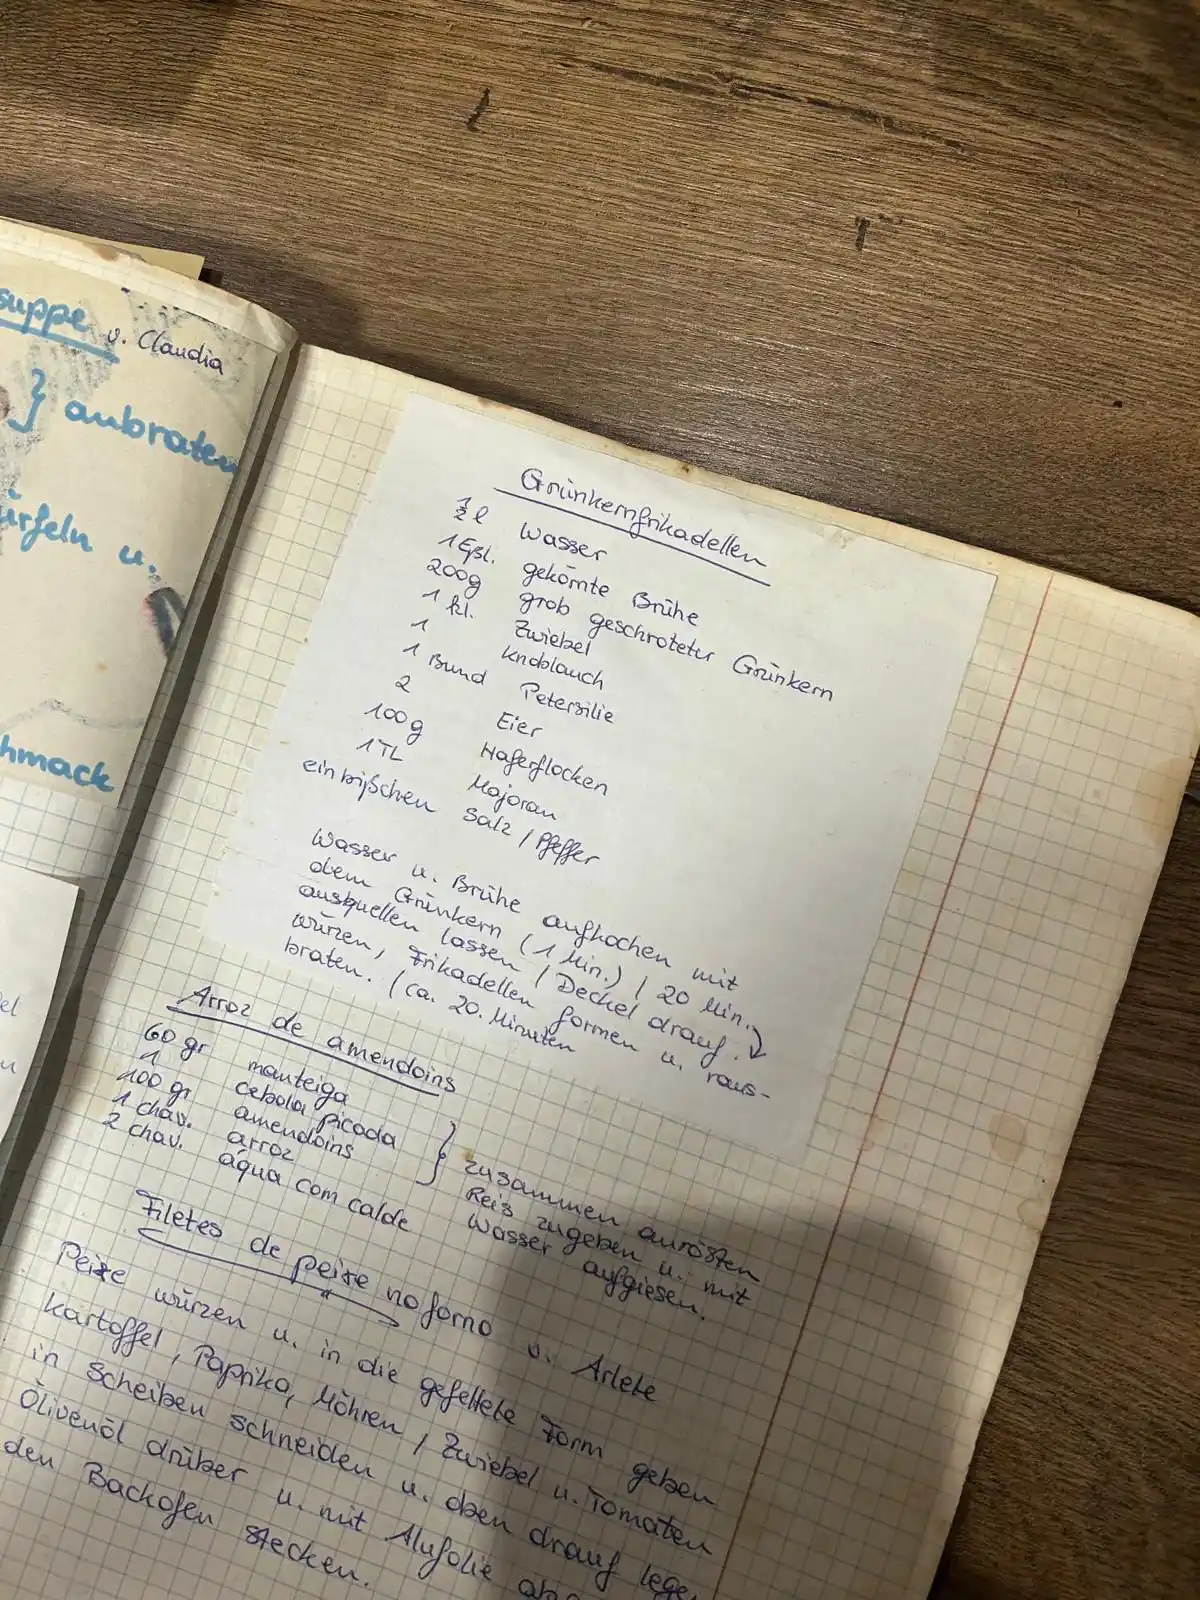 suppe v. Claudia
} anbraten
ürfeln u.
hmack
el
u
Grünkernfrikadellen
½ l Wasser
1 Eßl. gekörnte Brühe
200g grob geschroteter Grünkern
1 kl. Zwiebel
1 Knoblauch
1 Bund Petersilie
2 Eier
100g Haferflocken
1 TL Majoran
ein bißchen Salz / Pfeffer
Wasser u. Brühe aufkochen mit
dem Grünkern (1 Min.) / 20 Min.
ausquellen lassen / Deckel drauf.
würzen, Frikadellen formen u. raus-
braten. (ca. 20. Minuten
Arroz de amendoins
60 gr manteiga
1 cebola picada
100 gr amendoins
1 chav. arroz
2 chav. água com calde
} zusammen anrösten
Reis zugeben u. mit
Wasser aufgiesen.
Filetes de peixe no forno v. Arlete
Peixe würzen u. in die gefettete Form geben
Kartoffel, Paprika, Möhren / Zwiebel u. Tomaten
in Scheiben schneiden u. oben drauf lege
Olivenöl drüber u. mit Alufolie
den Backofen stecken.